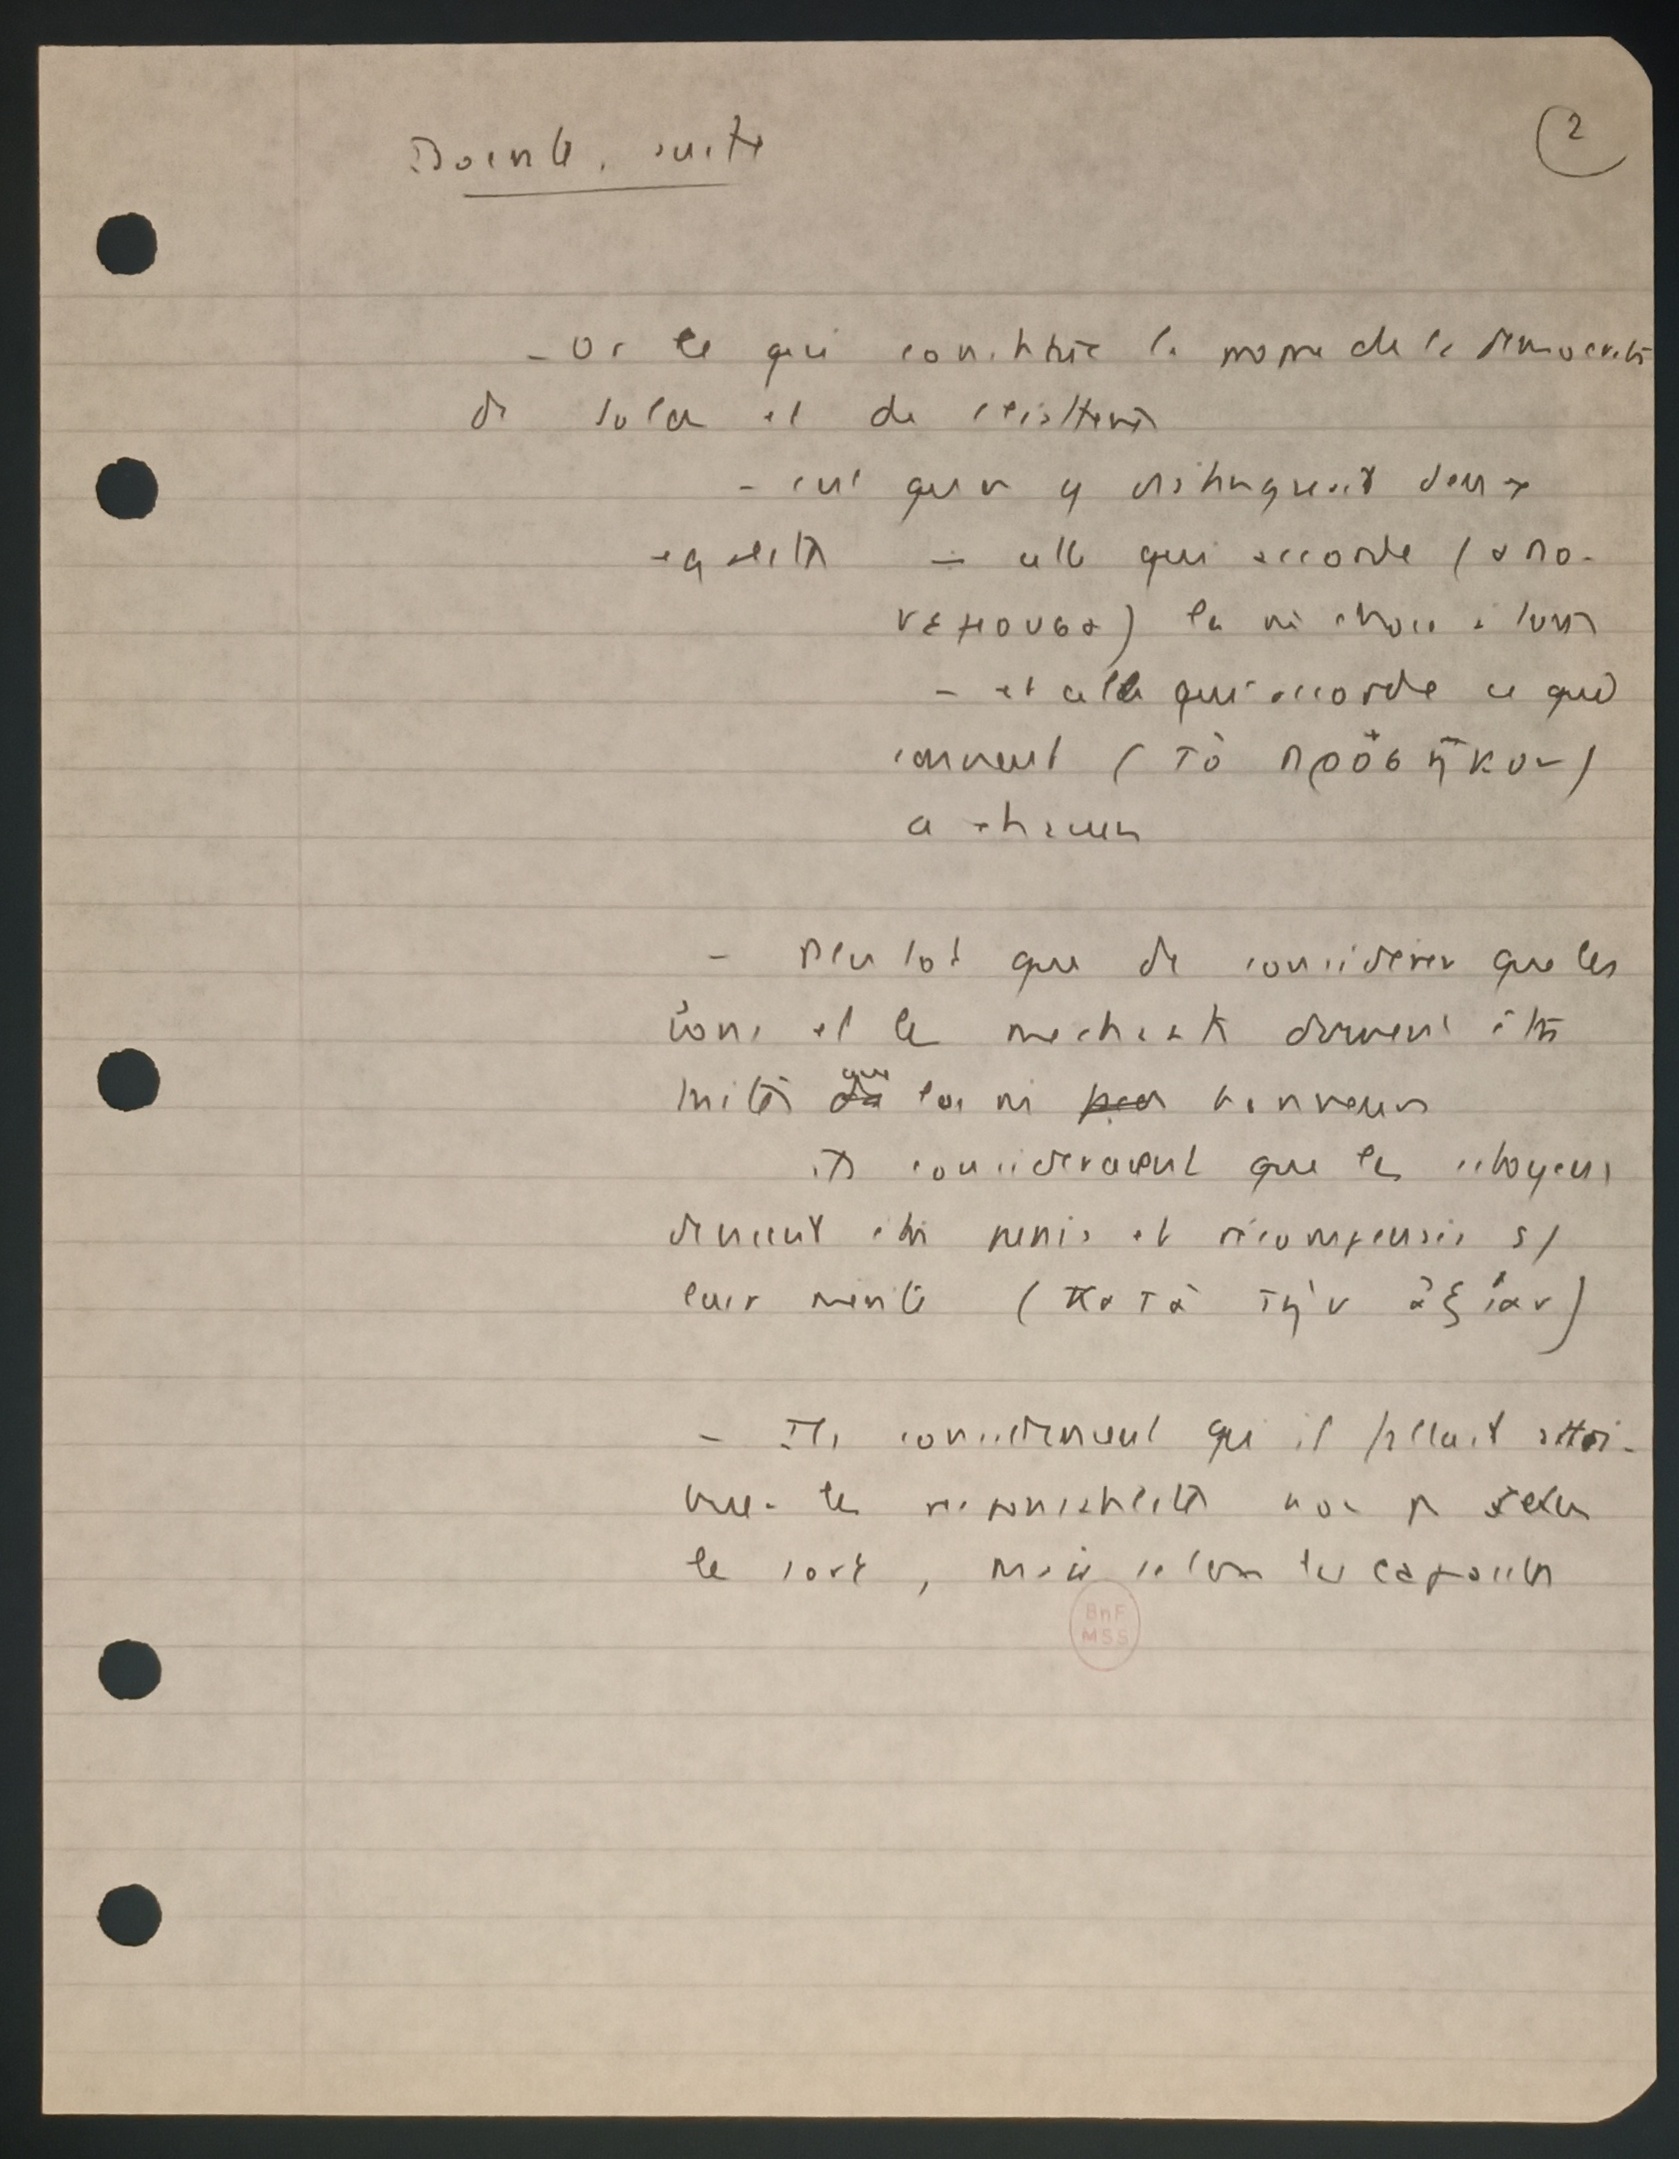 Isocrate, suite
2
- Or ce qui constitue le propre de la démocratie
de Solon et de Clisthène
- c'est qu'on y distinguait deux
égalités - celle qui accorde (απο-
νεμουσα) la m̂ chose à tous
- et celle qui accorde ce qui
convient (τὸ προσῆκον)
à chacun
- Plutot que de considérer que les
bons et les méchants doivent être
traités que les m̂ honneurs
ils considéraient que les citoyens
devaient être punis et récompensés s/
leur mérite (κατὰ τὴν ἀξίαν)
- Ils considéraient qu'il fallait attri-
buer les responsabilités non p selon
le sort, mais selon les capacités
BnF
MSS